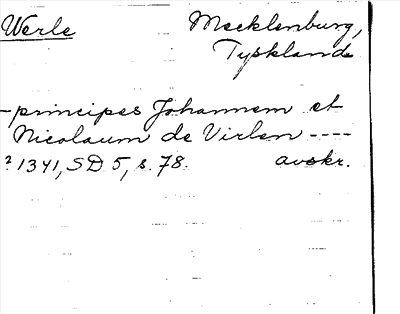 Werle Mecklenburg,
Tyskland
-principes Johannem et
Nicolaum de Virlen ----
? 1341, SD 5, s. 78. avskr.